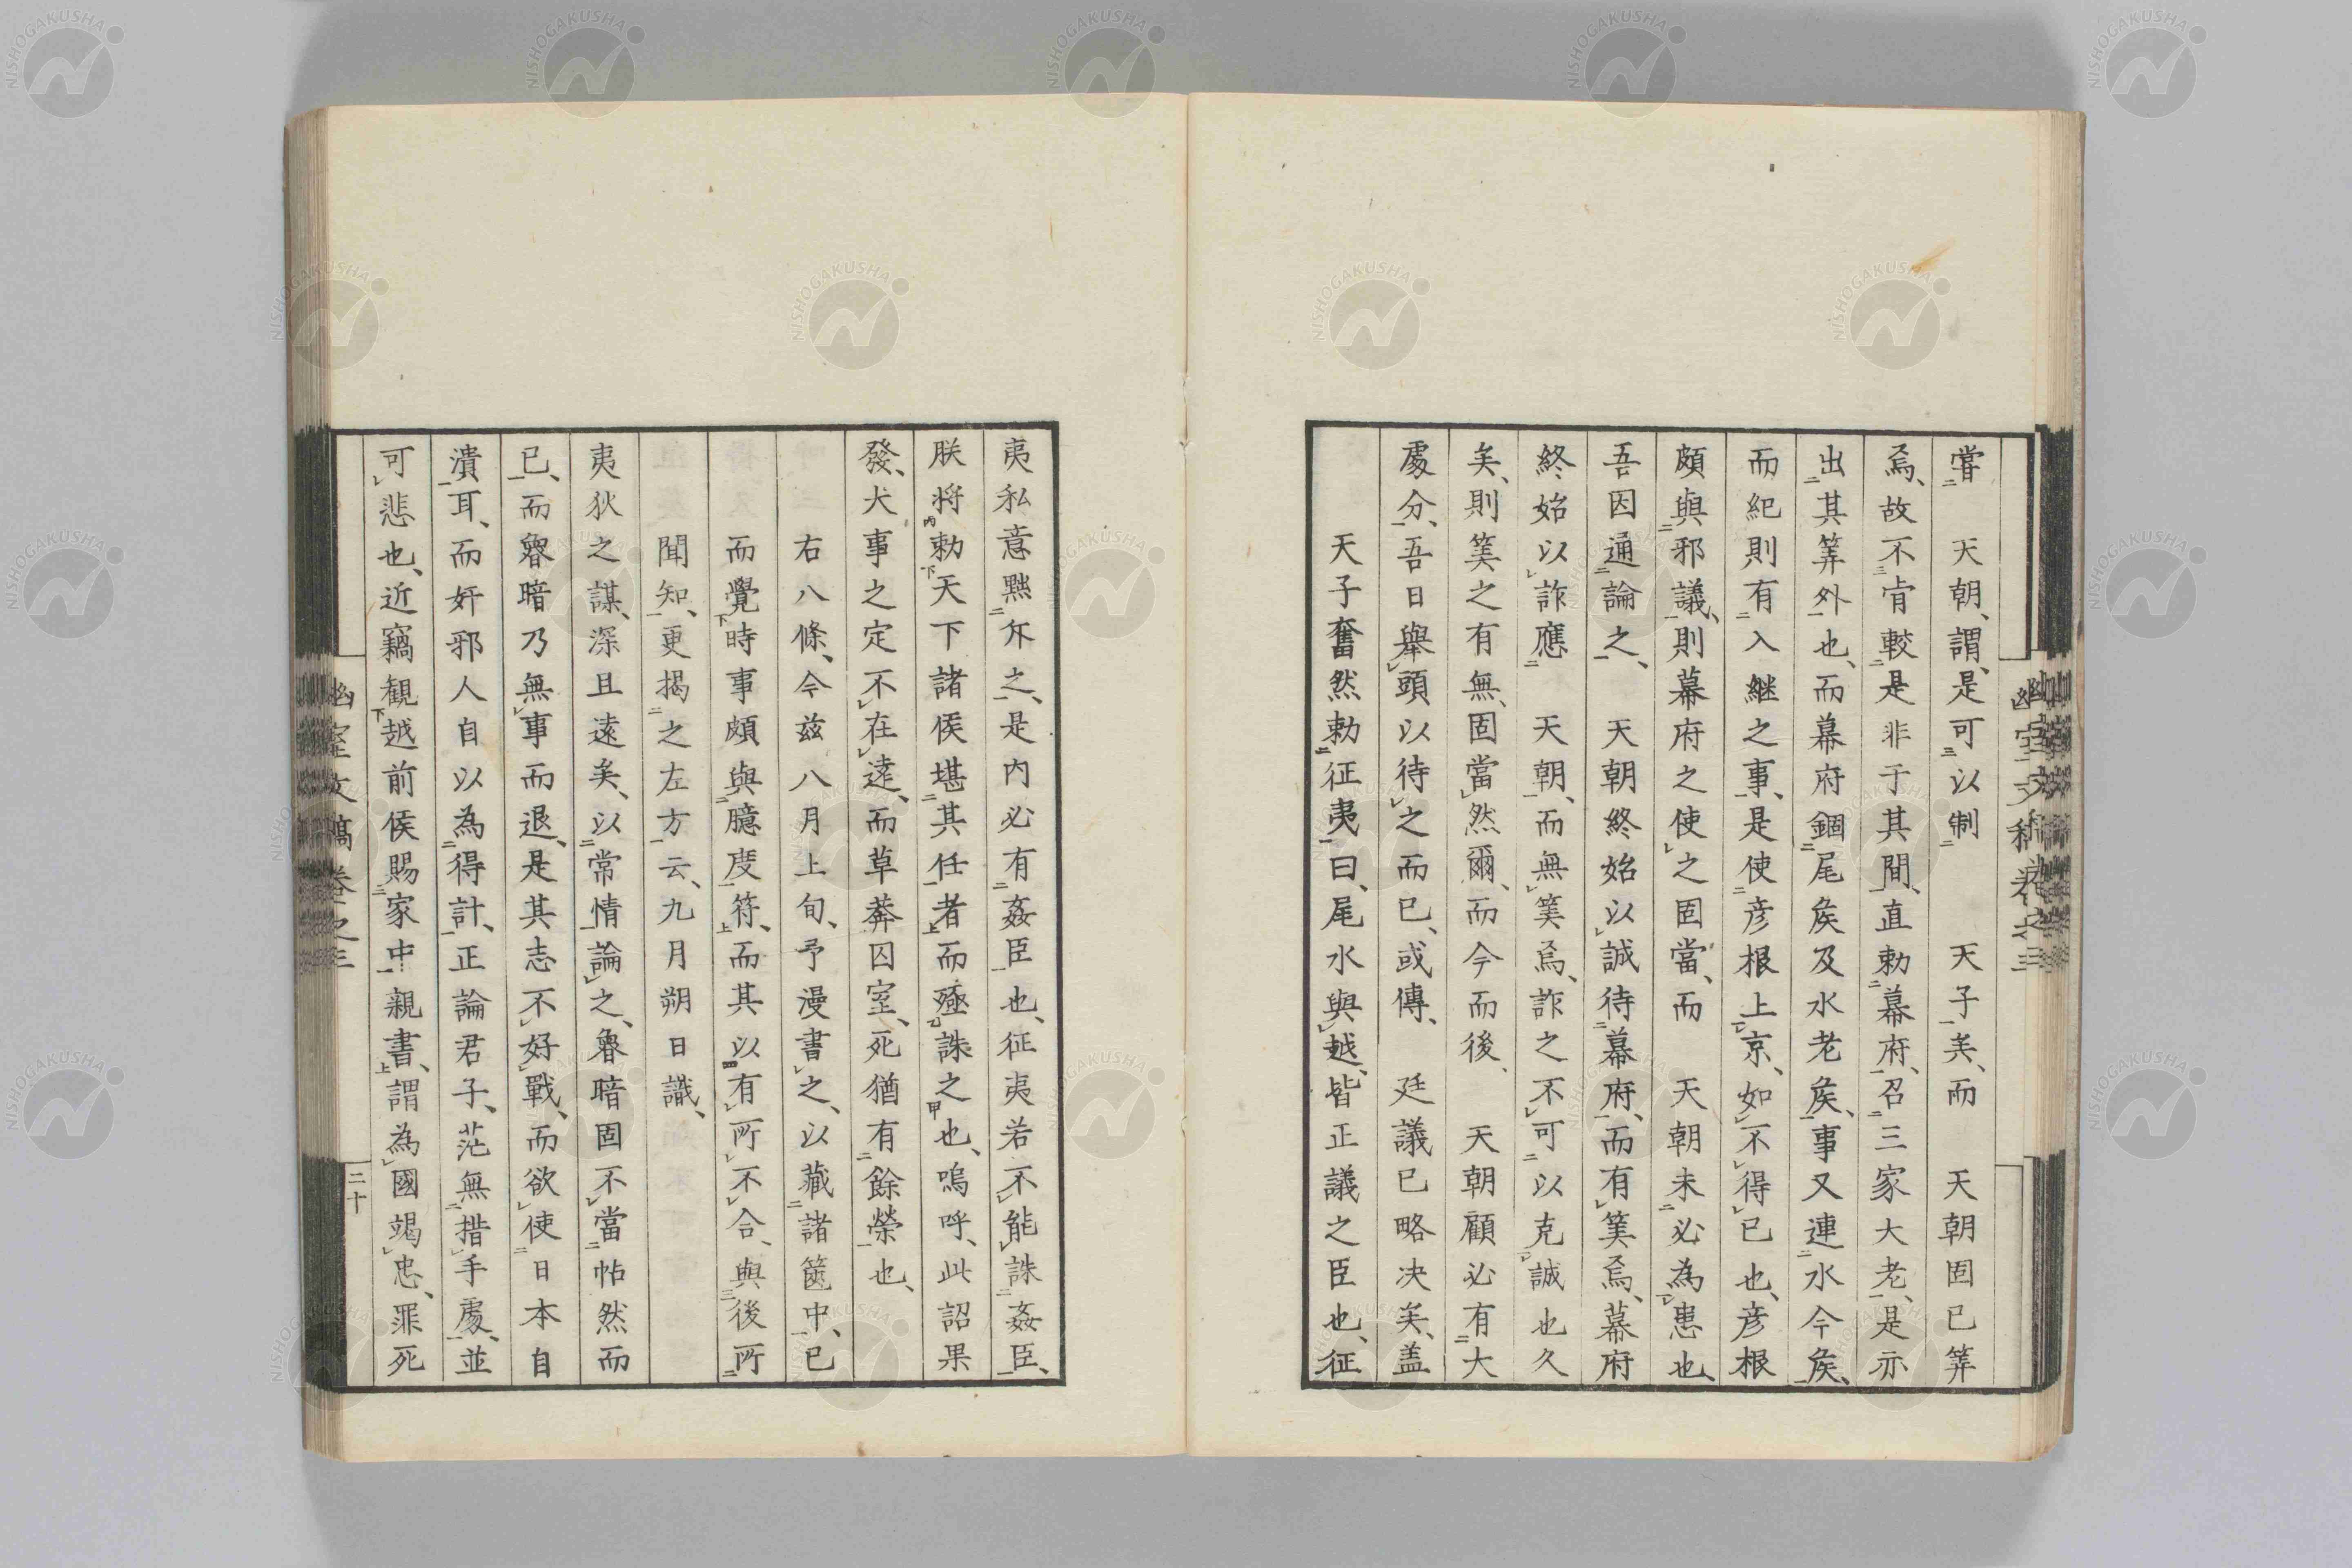 嘗　天朝、謂、是可以制　　天子矣、而　天朝固已筭
焉、故不肯較是非于其間、直勅幕府、召三家大老、是亦
出其筭外也、而幕府錮尾矦及水老矦、事又連水今矦、
而紀則有入継之事、是使彦根上京、如不得已也、彦根
頗與邪議、則幕府之使之固當、而　天朝未必為患也、
吾因通論之、　天朝終始以誠待幕府、而有筭焉、幕府
終始以詐應　天朝、而無筭焉、詐之不可以克誠也久
矣、則筭之有無、固當然爾、而今而後、　天朝顧必有大
處分、吾日舉頭以待之而已、或傳、　廷議已略决矣、盖
天子奮然勅征夷曰、尾水與越、皆正議之臣也、征
夷私意黜斥之、是内必有姦臣也、征夷若不能誅姦臣、
朕将勅天下諸侯堪其任者而殛誅之也、嗚呼、此詔果
發、大事之定不在遠、而草莽囚室、死猶有餘榮也、
右八條、今茲八月上旬、予漫書之、以藏諸篋中、已
而覺時事頗與臆度符、而其以有所不合、與後所
聞知、更揭之左方云、九月朔日識、
夷狄之謀、深且遠矣、以常情論之、魯暗固不當帖然而
已、而魯暗乃無事而退、是其志不好戰、而欲使日本自
潰耳、而奸邪人自以為得計、正論君子、茫無措手處、並
可悲也、近竊観越前侯賜家中親書、謂為國竭忠、罪死
幽室文稿卷之三
二十
幽室文稿卷之三